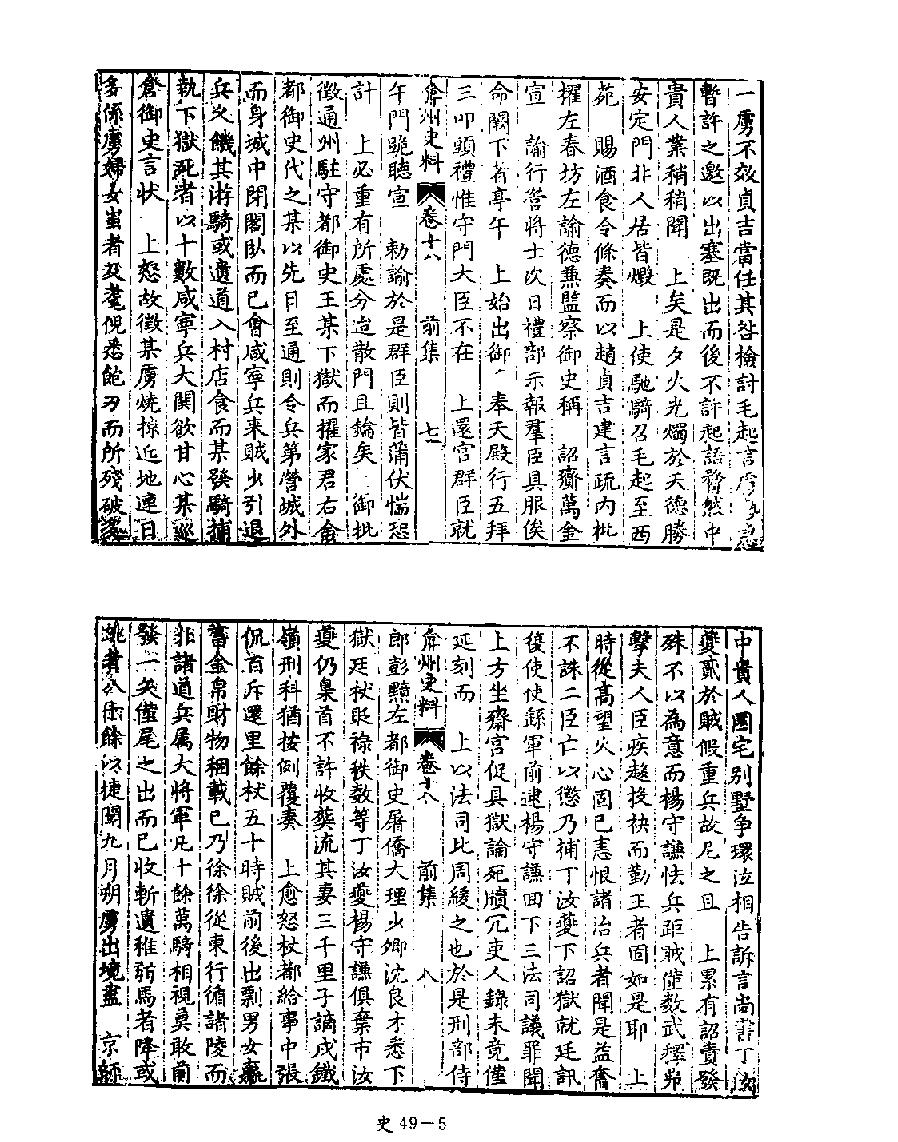 一虜不效貞吉當任其咎檢討毛起言虜
暫許之邀以出塞既出而後不許起語脊然中
貴人業稍稍聞　上矣是夕火光燭於天德勝
安定門北人居皆燬　上使馳騎召毛起至西
苑　賜酒食令條奏而以趙貞吉建言疏內批
擢左春坊左諭德兼監察御史稱　詔齎萬金
宣　諭行營將士次日禮部示報羣臣具服俟
命闕下者亭午　上始出御　奉天殿行五拜
三叩頭禮惟守門大臣不在　上還宮群臣就
弇州史料　卷十八　前集　七
午門跪聽宣　勅諭於是群臣則皆蒲伏惴恐
計　上必重有所處分迨散門且鑰矣　御批
徵通州駐守都御史王某下獄而擢家君右僉
都御史代之某以先日至通則令兵第營城外
而身減中閉閣臥而已會咸寧兵來賊少引退
兵久餓其游騎或遺通入村店食而某發騎捕
執下獄死者以十數咸寧兵大閧欲甘心某巡
倉御史言狀　上怒故徵某虜燒掠近地連日
多係虜婦女蚩者及耄倪悉飽刃而所殘破
中貴人園宅別墅爭環泣相告訴言尚書丁汝
夔貳於賊假重兵故尼之且　上累有詔責發
殊不以為意而楊守謙怯兵距賊僅數武擇
擊夫人臣疾趨投袂而勤王者固如是耶　上
時從高望火心固已恚恨諸治兵者聞是益奮
不誅二臣亡以懲乃補丁汝夔下詔獄就廷訊
復使使繇軍前逮楊守謙回下三法司議罪聞
上方坐齋宮促具獄論死牘冗吏人錄未竟僅
延刻而　上以法司比周緩之也於是刑部侍
弇州史料　卷十八　前集　八
郎彭黯左都御史屠僑大理少卿沈良才悉下
獄廷杖貶祿秩數等丁汝夔楊守謙俱棄市汝
夔仍梟首不許收葬流其妻三千里子謫戍鐵
嶺刑科猶按例覆奏　上愈怒杖都給事中張
侃百斥還里餘杖五十時賊前後出剽男女羸
蓄金帛財物稛載已乃徐徐從東行循諸陵而
北諸道兵屬大將軍凡十餘萬騎相視莫敢前
發一矢僅尾之出而已收斬遺稚弱馬者降或
八十餘以捷聞九月朔虜出境盡　京師
史 49－5